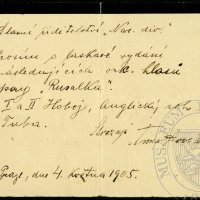 Slavné ředitelství „Nár. div."
Prosím o laskavé vydání
následujících ork. hlasů
opery „Rusalka".
I a II Hoboj, Anglický roh
Tuba.
Praze, dne 4. května 1905.
MUSEUM